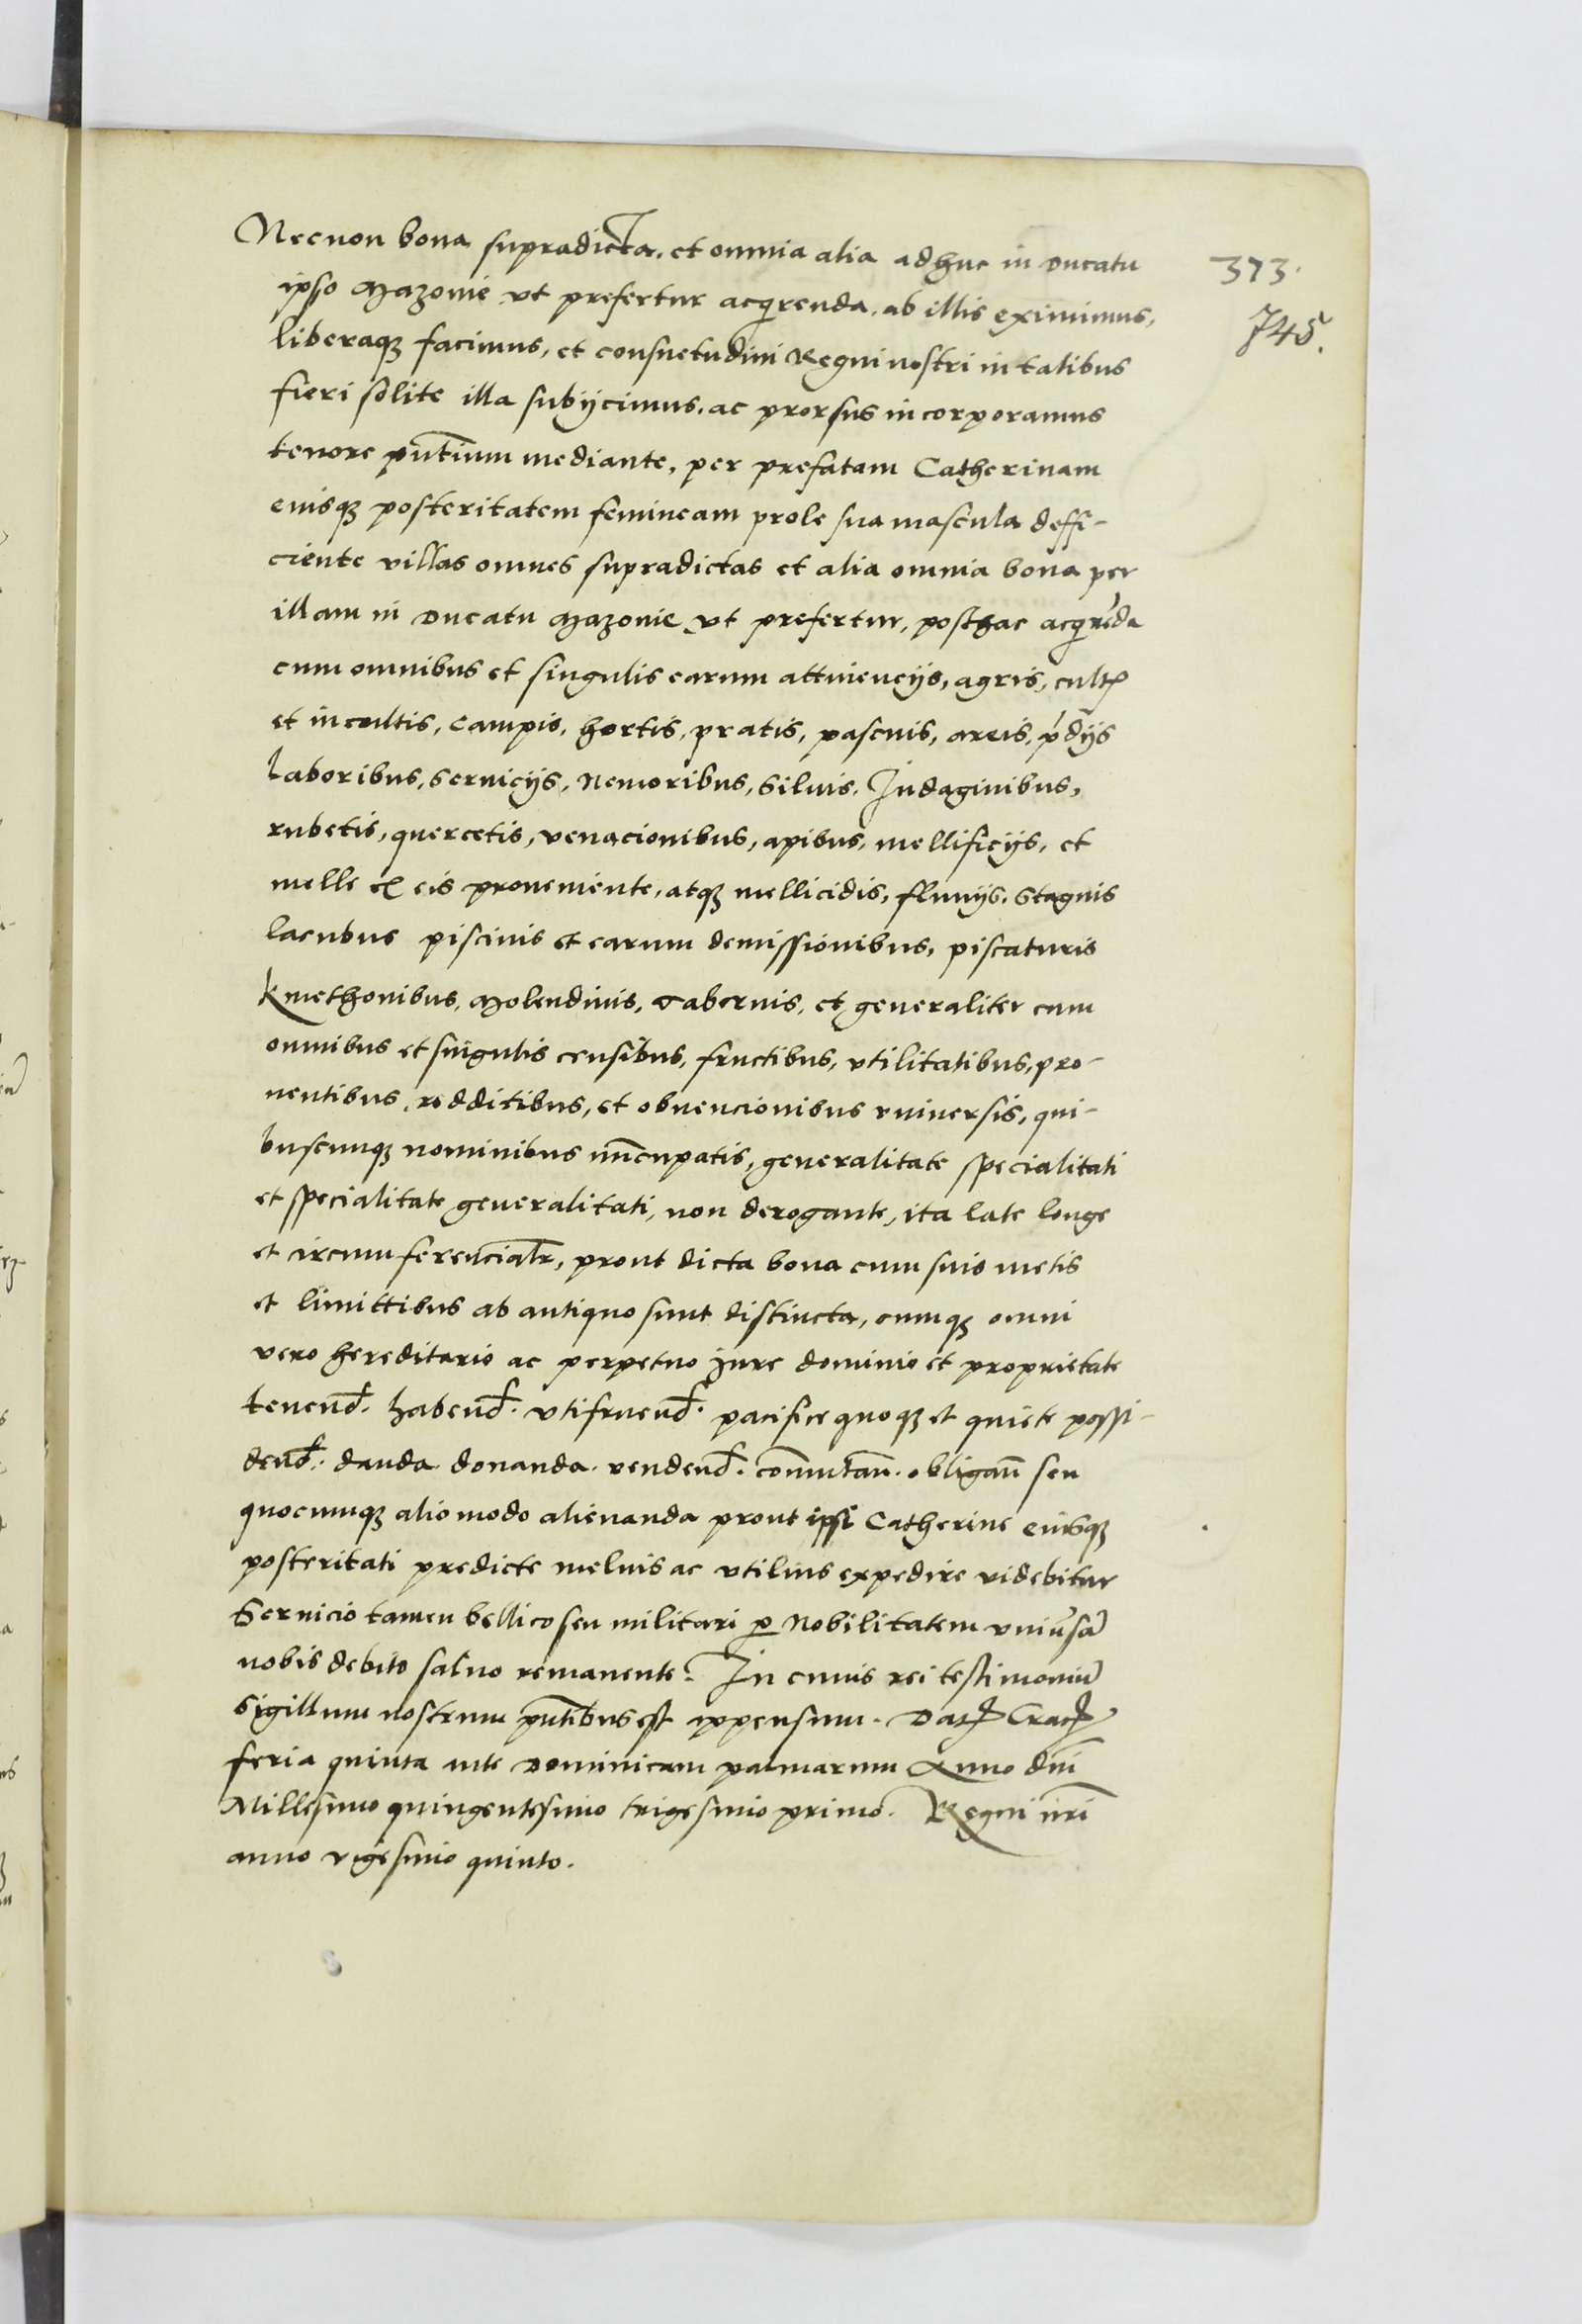 Necnon bona supradicta. et omnia alia adhuc in Ducatu
373.
ipso Mazovie vt prefertur acqirenda. ab illis eximimus,
745.
liberaqꝫ facimus, et consuetudini Regni nostri in talibus
fieri solite illa subijcimus. ac prorsus incorporamus
tenore pn̄tium mediante, per prefatam Catherinam
eiusqꝫ posteritatem femineam prole sua mascula deffi-
ciente villas omnes supradictas et alia omnia bona per
illam in Ducatu Mazovie vt prefertur, posthac acqirēda
cum omnibus et singulis earum attinencijs, agris, cultꝭ
et incultis, campis, hortis, pratis, pascuis, areis, p̄dijs
laboribus, seruicijs, Nemoribus, Siluis. Indaginibus,
rubetis, quercetis, venacionibus, apibus, mellificijs, et
melle ex eis proueniente, atqꝫ mellicidis, fluuijs. Stagnis
lacubus piscinis et earum demissionibus, piscaturis
kmethonibus, Molendinis, Tabernis, et generaliter cum
omnibus et singulis censibus, fructibus, vtilitatibus, pro-
uentibus, redditibus, et obuencionibus vniuersis, qui-
buscunqꝫ nominibus nūcupatis, generalitate specialitati
et specialitate generalitati, non derogante, ita late longe
et circumferencialr̄, prout dicta bona cum suis metis
et limittibus ab antiquo sunt distincta, cumqꝫ omni
vero hereditario ac perpetuo Jure dominio et proprietate
tenend̄. habend̄. vtifruend̄. pacifice quoqꝫ et quiete possi-
dend̄. danda donanda. vendend̄. com̄utan̄. obligan̄ seu
quocumqꝫ alio modo alienanda prout ipsi Catherine eiusqꝫ
posteritati predicte melius ac vtilius expedire videbitur
Seruicio tamen bellico seu militari ꝑ Nobilitatem vniūsā
nobis debito saluo remanente. In cuius rei testimoniū
Sigillum nostrum pn̄tibus est appensum. Datꝭ Cracꝭ
feria quinta ante Dominicam palmarum Anno dn̄i
Millesimo quingentesimo trigesimo primo. Regni nr̄i
anno vigesimo quinto.